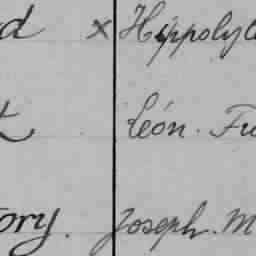 d × Hippolyt
t Léon. Fr
ory. Joseph. M